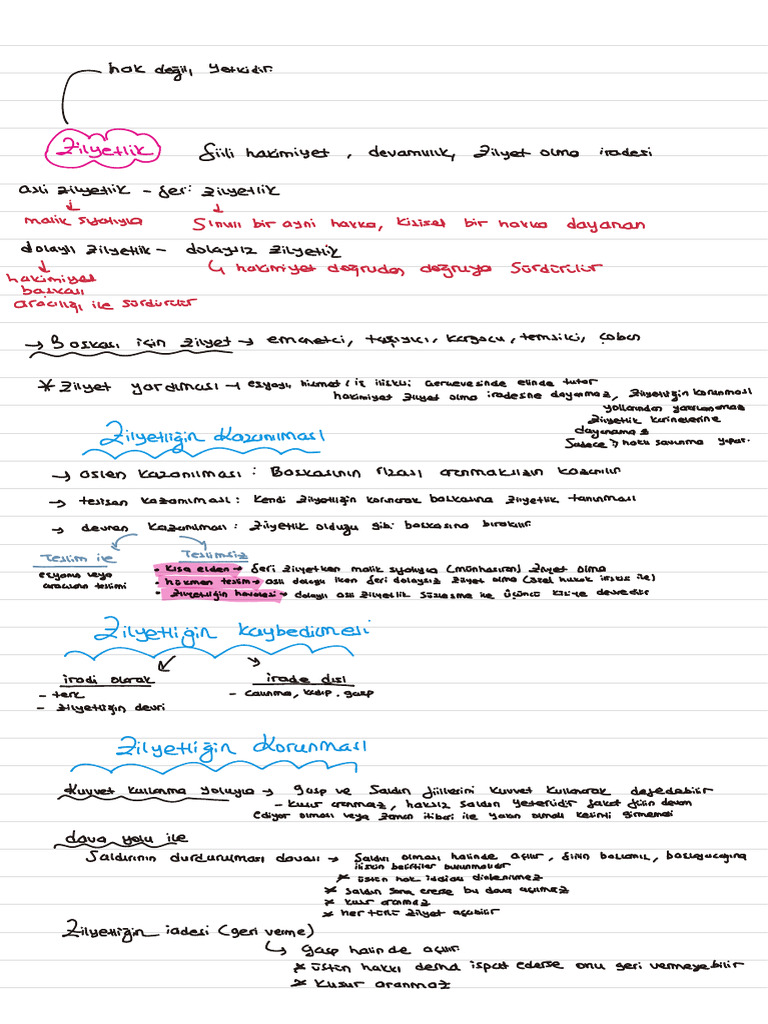 hak değil, yetkidir.
Zilyetlik fiili hakimiyet, devamlılık, zilyet olma iradesi
asli zilyetlik - fer'i zilyetlik
malik sıfatıyla Sınırlı bir ayni hakka, kişisel bir hakka dayanan
dolaylı zilyetlik - dolaysız zilyetlik
hakimiyet doğrudan doğruya sürdürülür
hakimiyet
başkası
aracılığı ile sürdürülür
→ Başkası için zilyet → emanetçi, taşıyıcı, kargocu, temsilci, çoban
* zilyet yardımcısı → eşyayı hizmet/iş ilişkisi çerçevesinde elinde tutar
hakimiyet zilyet olma iradesine dayanmaz, zilyetliğin korunması
yollarından yararlanamaz
zilyetlik karinelerine
dayanamaz
Sadece → haklı savunma yapar.
Zilyetliğin Kazanılması
→ aslen kazanılması : Başkasının rızası aranmaksızın kazanılır
→ tesisen kazanılması : kendi zilyetliğin korunarak başkasına zilyetlik tanınması
→ devren kazanılması : zilyetlik olduğu gibi başkasına bırakılır
Teslim ile Teslimsiz
eşyanın veya
aracların teslimi
• kısa elden → fer'i zilyetken malik sıfatıyla (münhasıran) zilyet olma
• hükmen teslim → asli dolaylı iken fer'i dolaysız zilyet olma (özel hukuk ilişkisi ile)
• zilyetliğin havalesi → dolaylı asli zilyetlik sözleşme ile üçüncü kişiye devredilir
Zilyetliğin kaybedilmesi
iradi olarak irade dışı
- terk - çalınma, kayıp, gasp
- zilyetliğin devri
Zilyetliğin Korunması
Kuvvet kullanma yoluyla → gasp ve saldırı fiillerini kuvvet kullanarak defedebilir
- kusur aranmaz, haksız saldırı yeterlidir fakat fiilin devam
ediyor olması veya zaman itibari ile yakın olmalı kesinti girmemesi
dava yolu ile
Saldırının durdurulması davası → Saldırı olması halinde açılır, fiilin başlamış, başlayacağına
ilişkin belirtiler bulunmalıdır
* üstün hak iddiası dinlenilmez
* saldırı sona ererse bu dava açılmaz
* kusur aranmaz
* her türlü zilyet açabilir
Zilyetliğin iadesi (geri verme)
gasp halinde açılır
* üstün hakkı derhal ispat ederse onu geri vermeyebilir
* kusur aranmaz